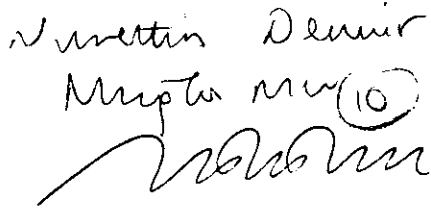 Nurettin Demir
Muğla Mv (10)